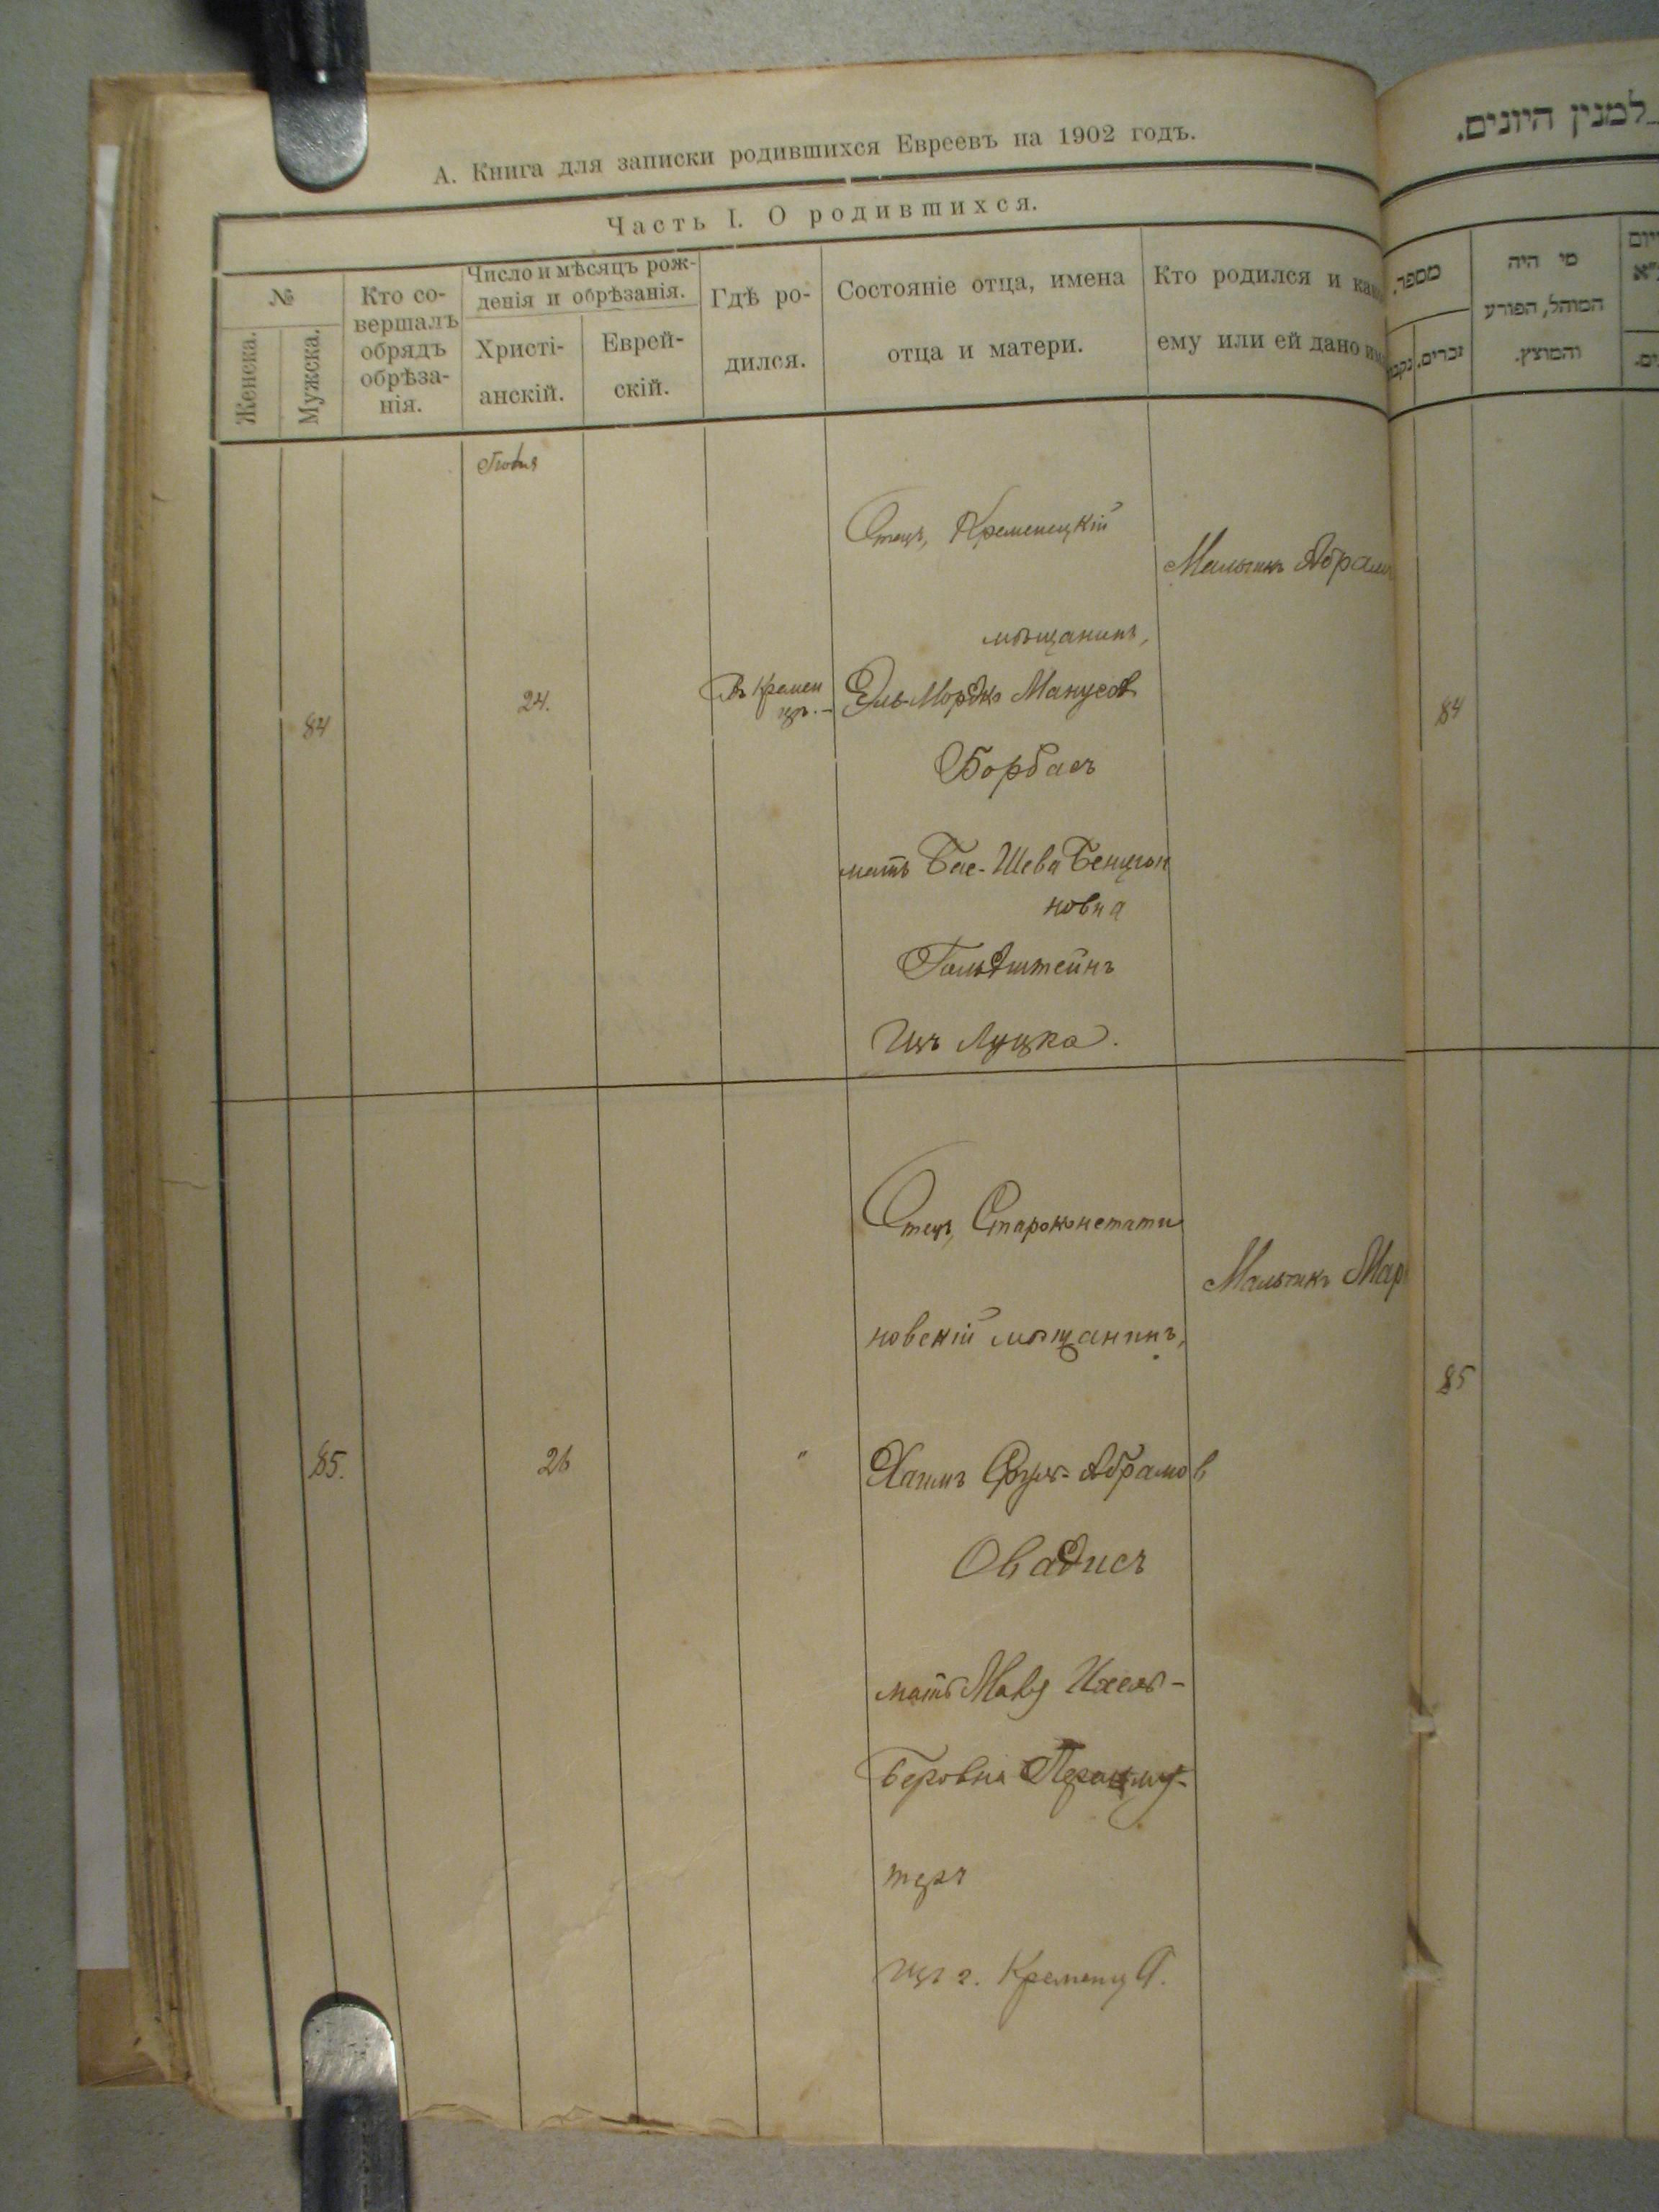 А. Книга для записки родившихся Евреевъ на 1902 годъ.
Часть I. О родившихся.
№
Женска.
Мужска.
Кто со-
вершалъ
обрядъ
обрѣза-
нія.
Число и мѣсяцъ рож-
денія и обрѣзанія.
Христі-
анскій.
Еврей-
скій.
Гдѣ ро-
дился.
Состояніе отца, имена
отца и матери.
Кто родился и как
ему или ей дано им
84
24.
Въ Кремен
цѣ.-
Отецъ, Кременецкій
мѣщанинъ,
Эль-Мордко Манусов
Борбасъ
мать Бас-Шева Бенцion
новна
Гольдштейнъ
Изъ Луцка.
Мальчикъ Абрам
85.
26
"
Отецъ, Староконстанти
новскій мѣщанинъ,
Хаимъ Абрамов
Овадисъ
мать
Беровна
изъ г. Кременца.
Мальчикъ Мар
למנין היונים.
מספר.
זכרים.
נקב
מי היה
המוהל, הפורע
והמוצץ.
84
85